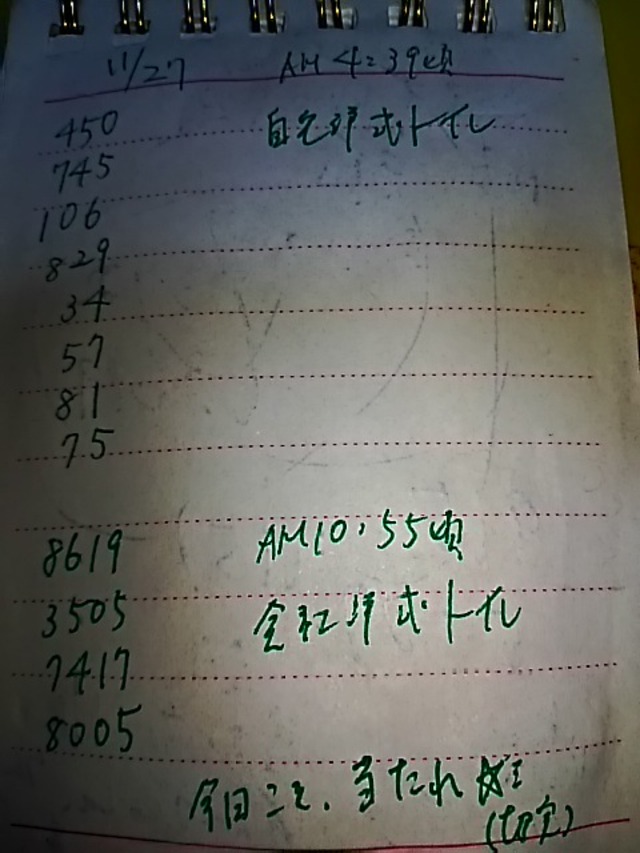 11/27 AM 4:39頃
450 自宅洋式トイレ
745
106
829
34
57
81
75
8619 AM10:55頃
3505 会社洋式トイレ
7417
8005
今日こそ、当たれ
(切実)